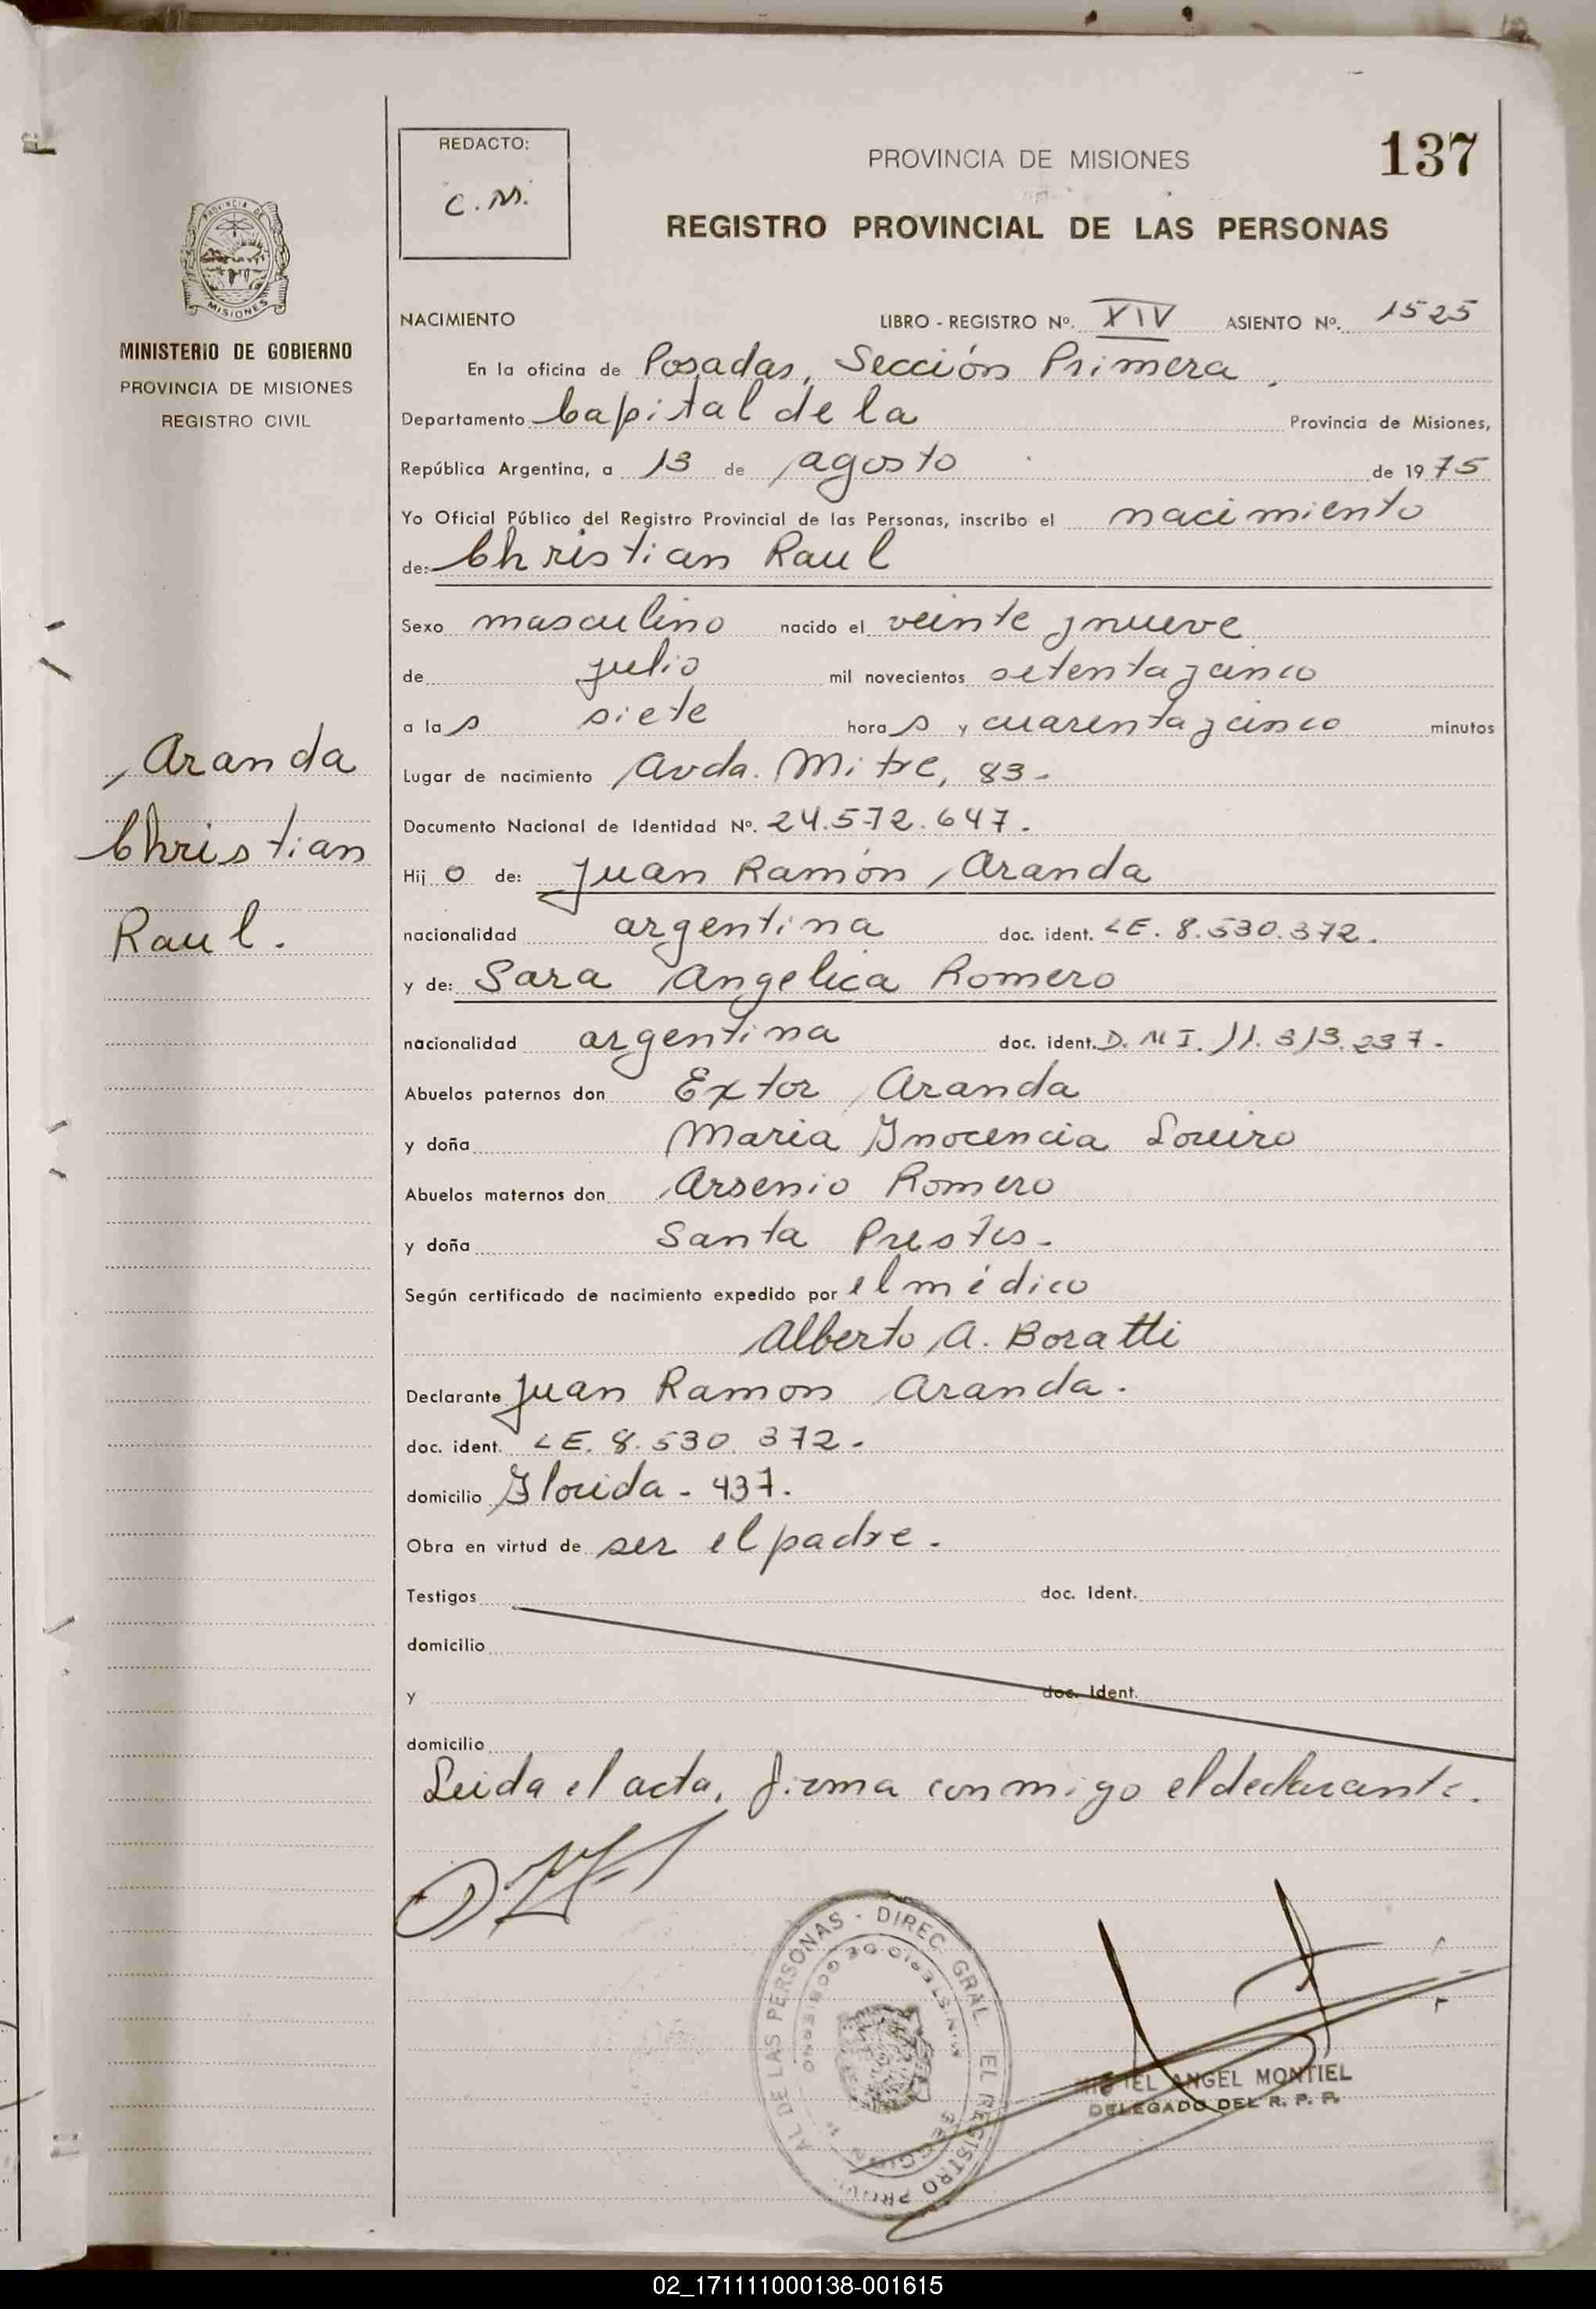 REDACTO:
C. M.
PROVINCIA DE MISIONES
137
REGISTRO PROVINCIAL DE LAS PERSONAS
PROVINCIA DE
MISIONES
MINISTERIO DE GOBIERNO
PROVINCIA DE MISIONES
REGISTRO CIVIL
NACIMIENTO LIBRO - REGISTRO Nº. XIV ASIENTO Nº. 1525
En la oficina de Posadas, Sección Primera,
Departamento Capital de la Provincia de Misiones,
República Argentina, a 13 de agosto de 1975
Yo Oficial Público del Registro Provincial de las Personas, inscribo el nacimiento
de: Christian Raul
Sexo masculino nacido el veinte y nueve
de julio mil novecientos setenta y cinco
a las siete horas y cuarenta y cinco minutos
Aranda
Christian
Raul.
Lugar de nacimiento Avda. Mitre, 83.
Documento Nacional de Identidad Nº. 24.572.647.
Hijo de: Juan Ramón Aranda
nacionalidad argentina doc. ident. LE. 8.530.372.
y de: Sara Angelica Romero
nacionalidad argentina doc. ident. D.N.I. 11.313.237.
Abuelos paternos don Extor Aranda
y doña Maria Inocencia Loueiro
Abuelos maternos don Arsenio Romero
y doña Santa Prestes.
Según certificado de nacimiento expedido por el médico
Alberto A. Boratti
Declarante Juan Ramon Aranda.
doc. ident. LE. 8.530.372.
domicilio Florida - 437.
Obra en virtud de ser el padre.
Testigos doc. Ident.
domicilio
y doc. Ident.
domicilio
Leida el acta, firma conmigo el declarante.
AL DE LAS PERSONAS - DIREC. GRAL. EL REGISTRO PROVI
MINISTERIO DE GOBIERNO
MIGUEL ANGEL MONTIEL
DELEGADO DEL R. P. P.
02_171111000138-001615